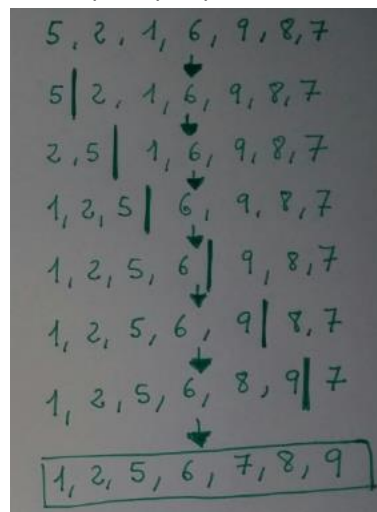 5, 2, 1, 6, 9, 8, 7
5| 2, 1, 6, 9, 8, 7
2, 5| 1, 6, 9, 8, 7
1, 2, 5| 6, 9, 8, 7
1, 2, 5, 6| 9, 8, 7
1, 2, 5, 6, 9| 8, 7
1, 2, 5, 6, 8, 9| 7
1, 2, 5, 6, 7, 8, 9